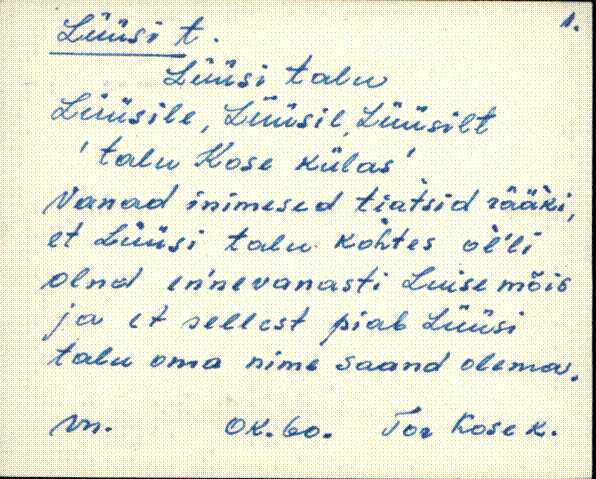 1.
Lüüsi t.
Lüüsi talu
Lüüsile, Lüüsil, Lüüsilt
'talu Kose külas'
Vanad inimesed tiatsid rääki,
et Lüüsi talu kohtes òl'li
olnd en'nevanasti Luise mõis
ja et sellest piab Lüüsi
talu oma nime saand olema.
Vn. OK. 60. Tor Kose k.